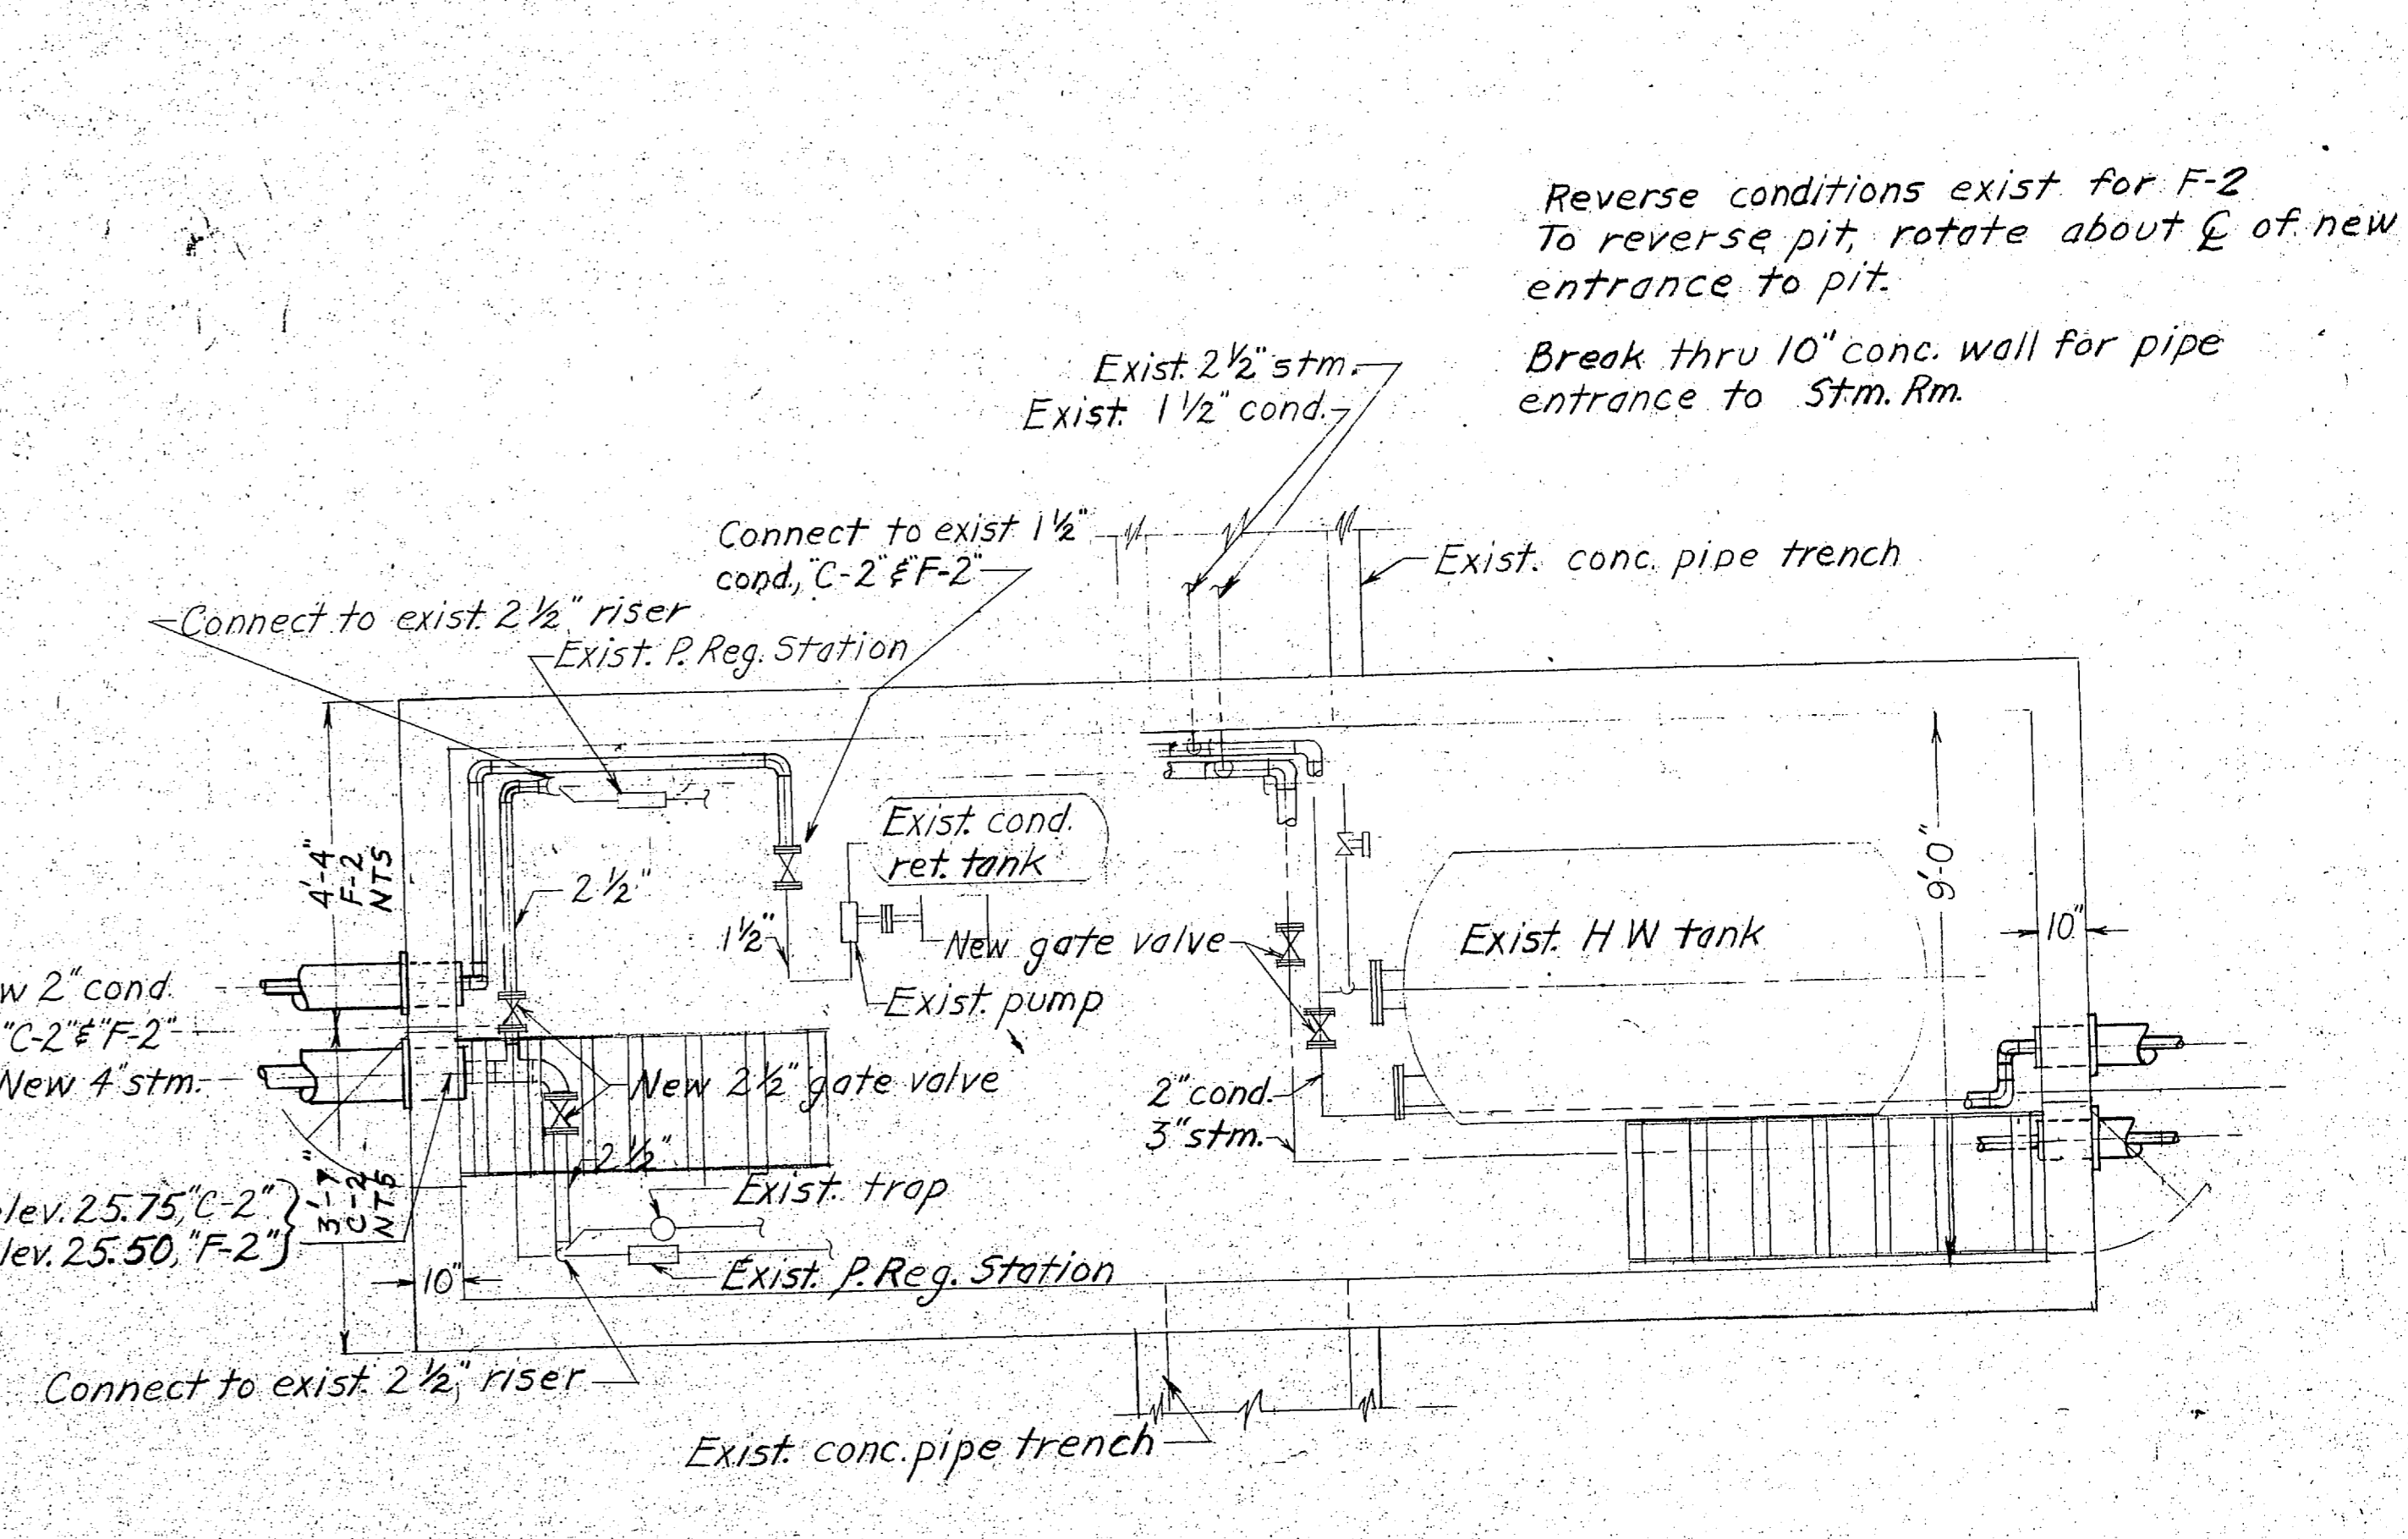 Reverse conditions exist for F-2
To reverse pit, rotate about ℄ of new
entrance to pit.
Break thru 10" conc. wall for pipe
entrance to Stm. Rm.
Exist. 2 1/2" stm.
Exist. 1 1/2" cond.
Connect to exist 1 1/2"
cond., "C-2" & "F-2"
Exist. conc. pipe trench
Connect to exist. 2 1/2" riser
Exist. P. Reg. Station
4'-4"
F-2
NTS
2 1/2"
1 1/2"
Exist. cond.
ret. tank
New gate valve
Exist. pump
Exist. H W tank
9'-0"
10"
w 2" cond.
"C-2" & "F-2"
New 4" stm.
New 2 1/2" gate valve
2" cond.
3" stm.
2 1/2"
Exist. trap
lev. 25.75, "C-2"
lev. 25.50, "F-2"
3'-7"
C-2
NTS
10"
Exist. P. Reg. Station
Connect to exist. 2 1/2" riser
Exist. conc. pipe trench